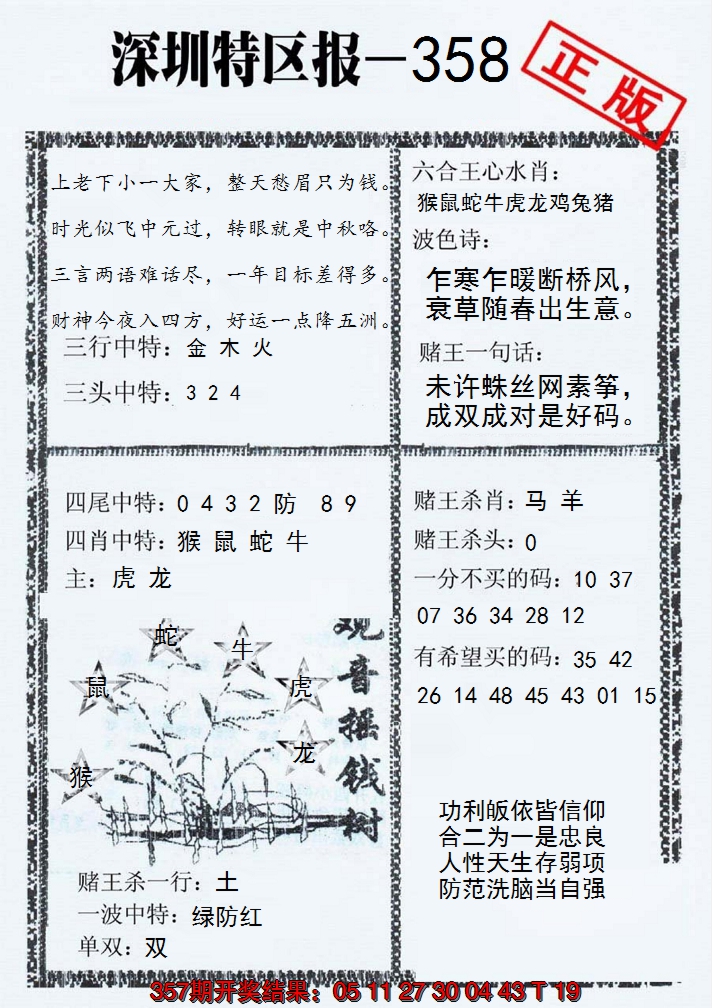 深圳特区报—358
正版
上老下小一大家，整天愁眉只为钱。
时光似飞中元过，转眼就是中秋咯。
三言两语难话尽，一年目标差得多。
财神今夜入四方，好运一点降五洲。
三行中特：金 木 火
三头中特：3 2 4
六合王心水肖：
猴鼠蛇牛虎龙鸡兔猪
波色诗：
乍寒乍暖断桥风，
衰草随春出生意。
赌王一句话：
未许蛛丝网素筝，
成双成对是好码。
四尾中特：0 4 3 2 防 8 9
四肖中特：猴 鼠 蛇 牛
主：虎 龙
蛇
牛
鼠
虎
龙
猴
观音摇钱树
赌王杀一行：土
一波中特：绿防红
单双：双
赌王杀肖：马 羊
赌王杀头：0
一分不买的码：10 37
07 36 34 28 12
有希望买的码：35 42
26 14 48 45 43 01 15
功利皈依皆信仰
合二为一是忠良
人性天生存弱项
防范洗脑当自强
357期开奖结果：05 11 27 30 04 43 T 19